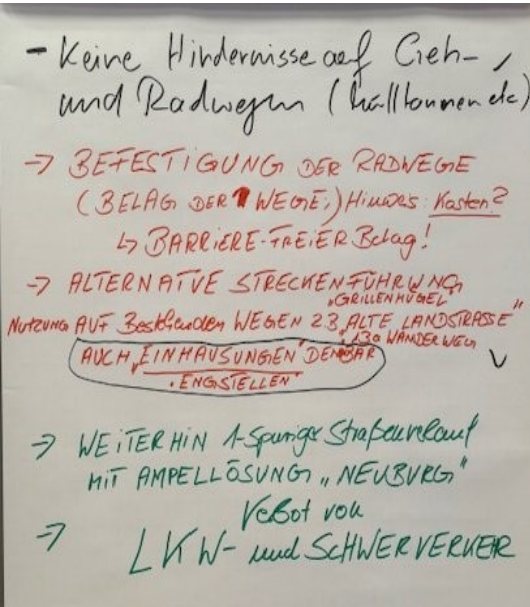 - Keine Hindernisse auf Geh-,
und Radwegen (Mülltonnen etc)
→ BEFESTIGUNG DER RADWEGE
(BELAG DER WEGE,) Hinweis: Kosten?
↳ BARRIERE-FREIER Belag!
→ ALTERNATVE STRECKENFÜHRUNG
"GRILLENHÜGEL"
NUTZUNG AUF Bestehenden WEGEN z.B. "ALTE LANDSTRASSE"
WANDERWEG
AUCH "EINHAUSUNGEN" DENKBAR
"ENGSTELLEN"
→ WEITERHIN 1-Spuriger Straßenverlauf
MIT AMPELLÖSUNG "NEUBURG"
→ Verbot von
LKW- und SCHWERVERKEHR